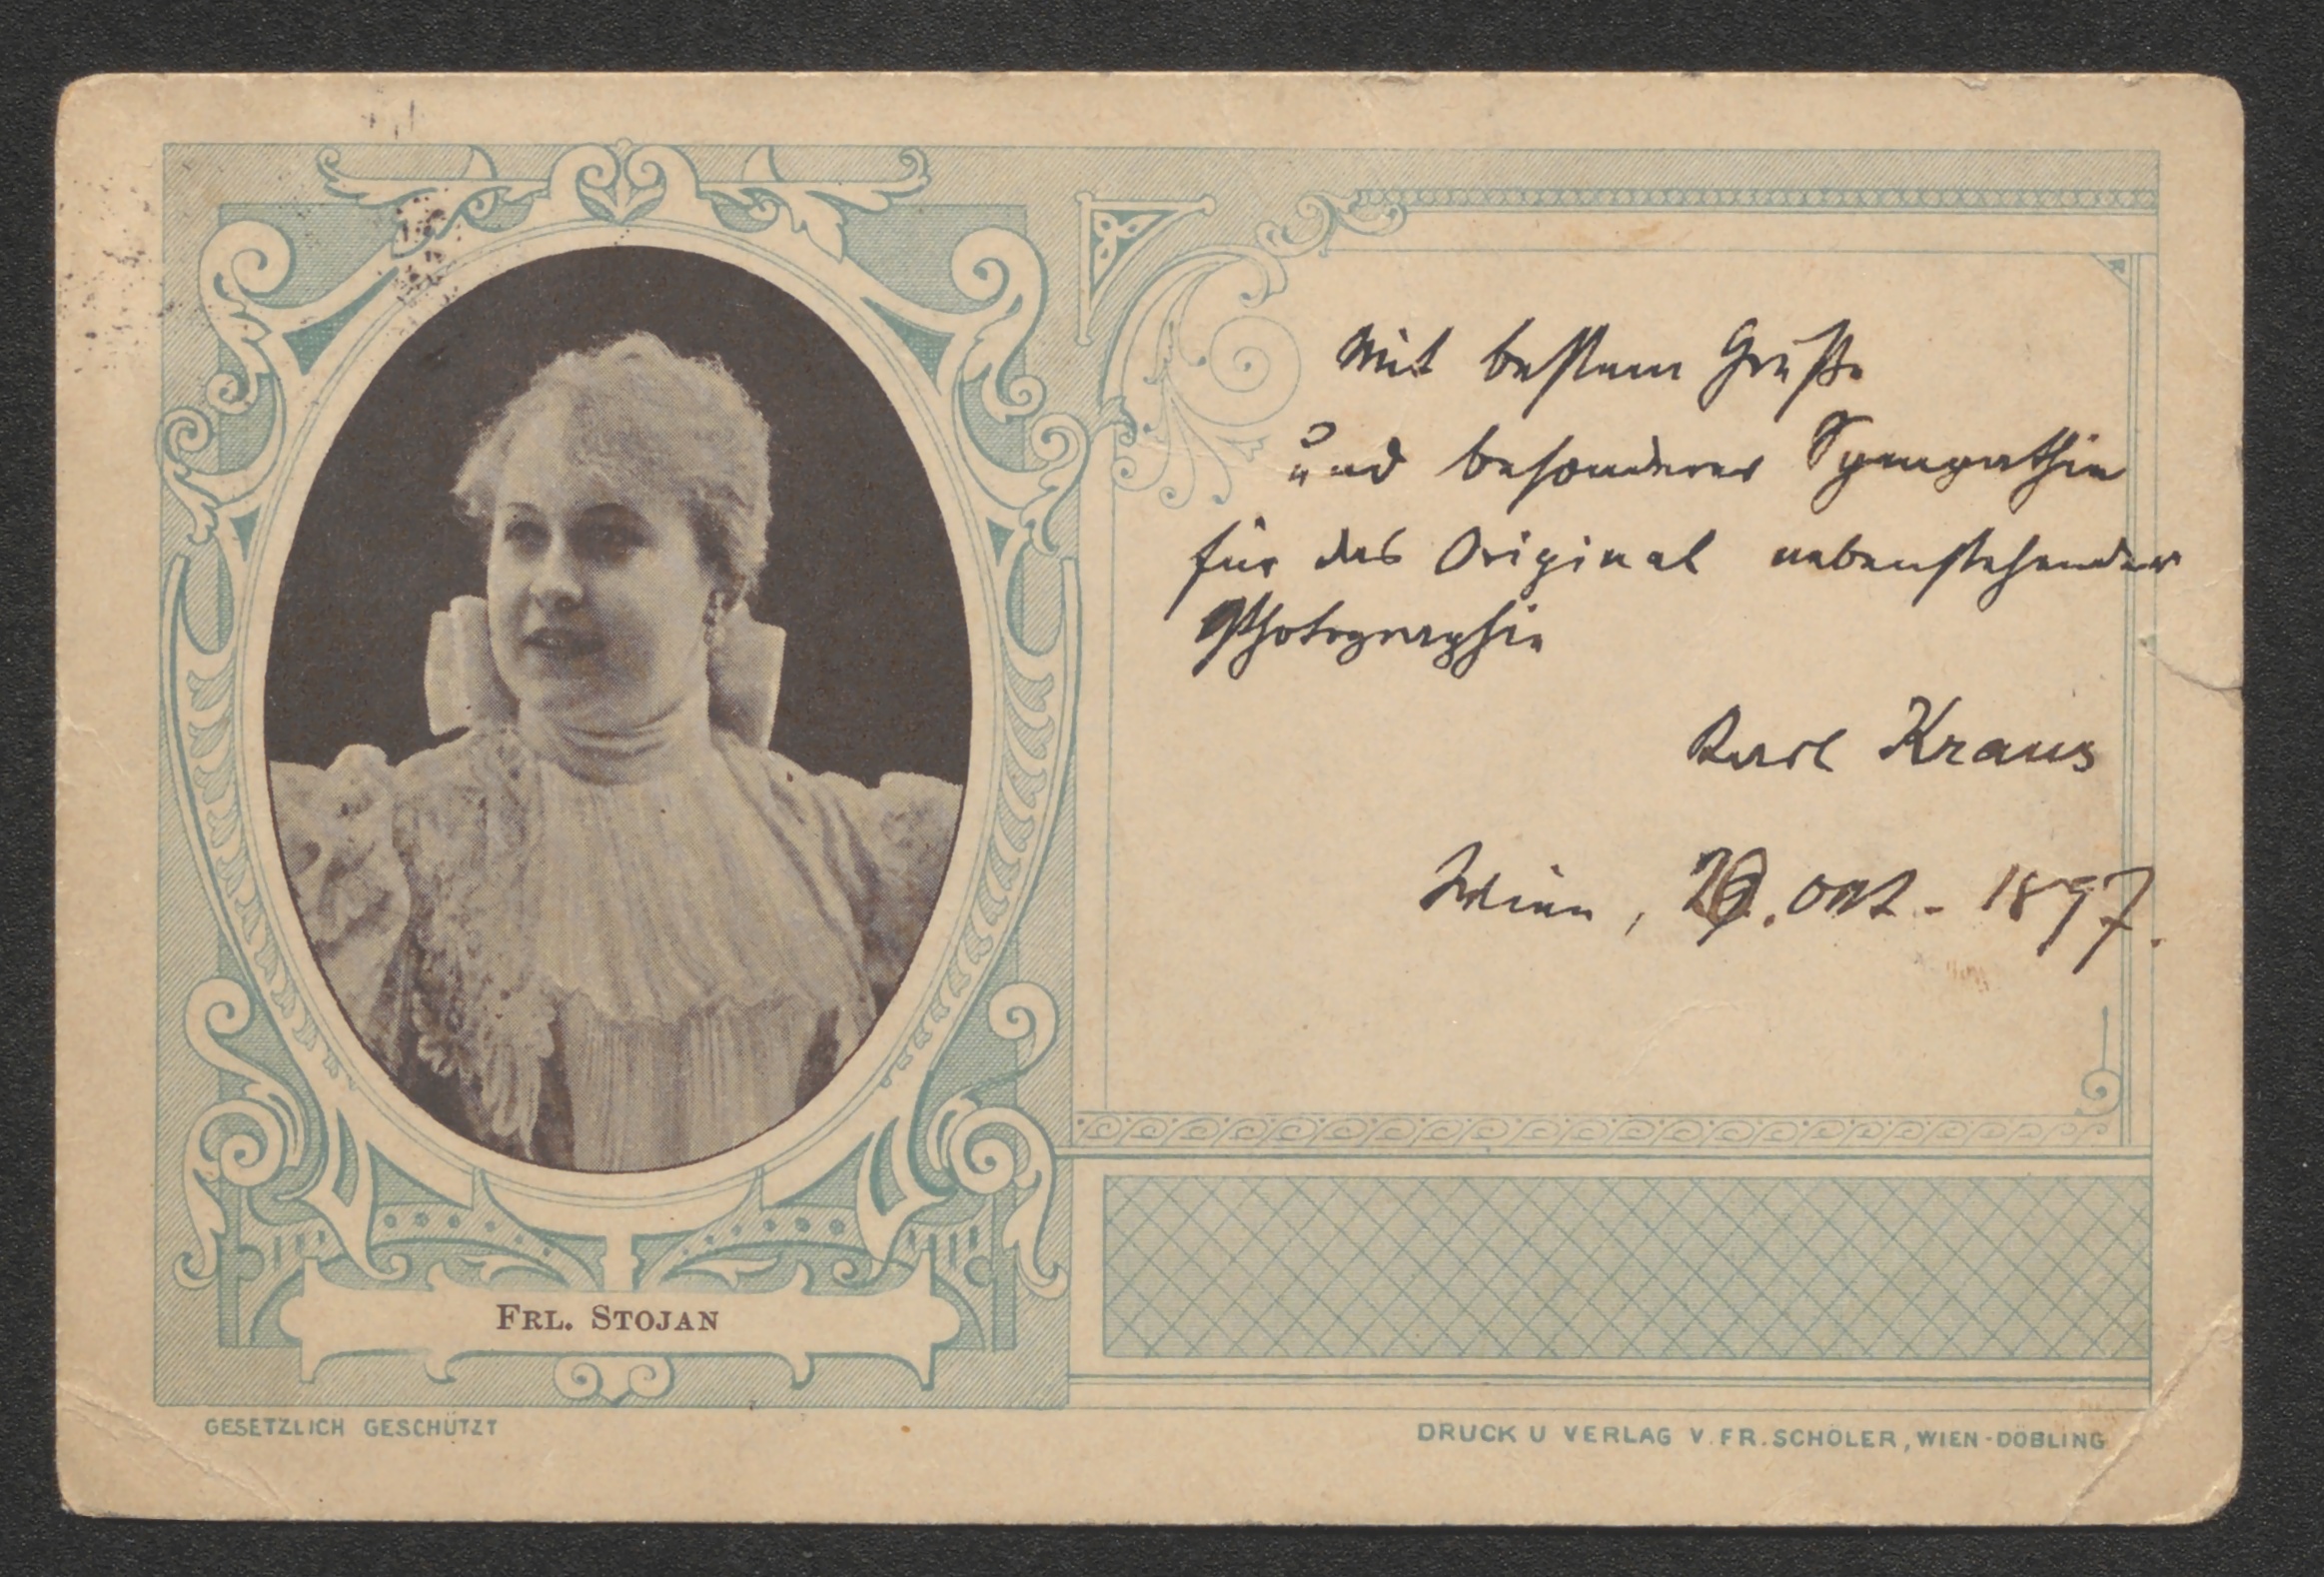 Mit bestem Gruße
und besonderer Sympathie
für das Original nebenstehender
Photographie
Karl Kraus
Wien, Okt. 1897.
FRL. STOJAN
GESETZLICH GESCHÜTZT
DRUCK U VERLAG V. FR. SCHÖLER, WIEN-DÖBLING